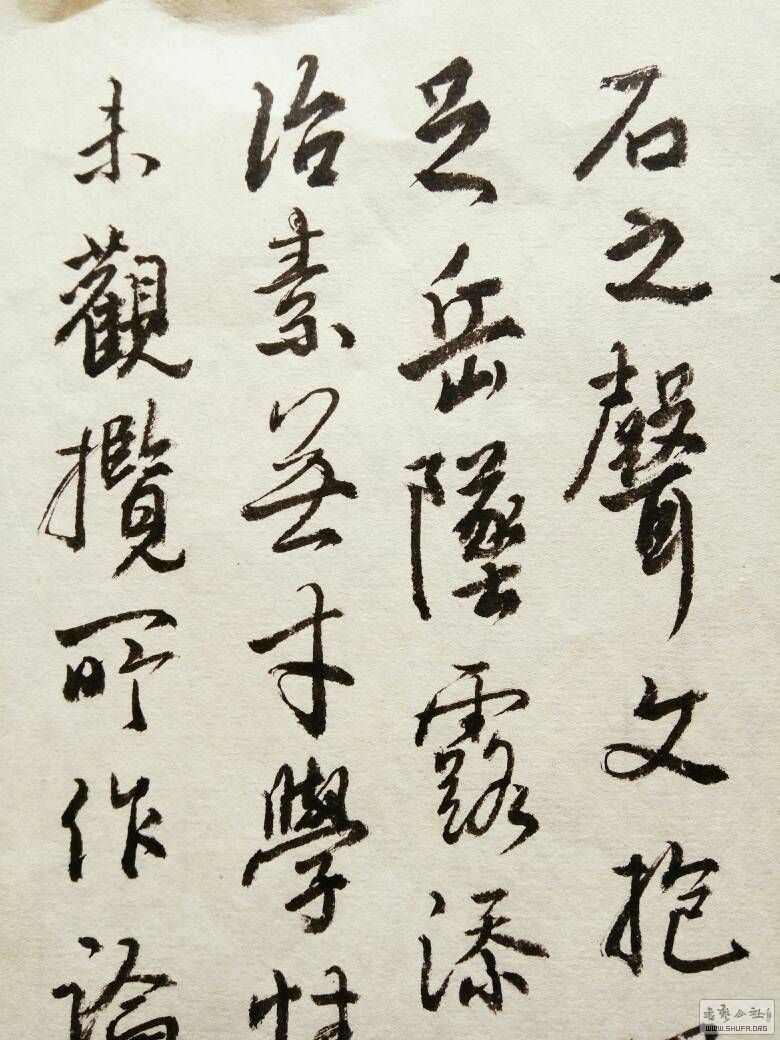 石之聲文抱
足岳墜露添
治素無才學性
未觀攬所作論
書藝公社
WWW.SHUFA.ORG